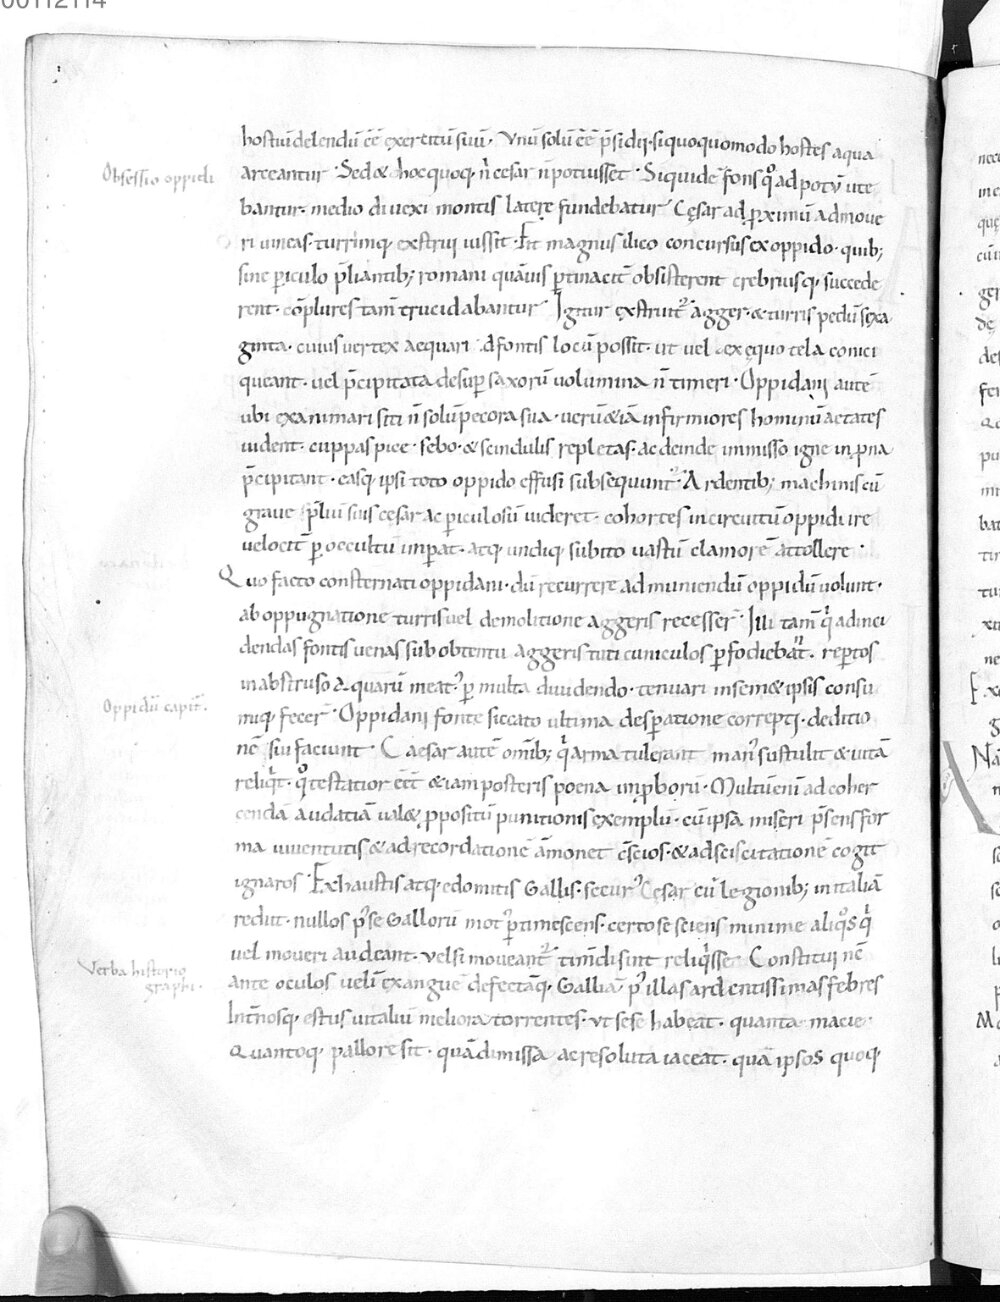 00112114
hostiū delendū eē exercitū suū. Vnū solū eē p̄sidii. si quoquomodo hostes aqua
Obsessio oppidi
arceantur. Sed & hoc quoq. n̄ cesar n̄ potuisset. Siquidē fons qͦ ad potū ute
bantur. medio diuexi montis latere fundebatur. Cęsar ad pximū admoue
ri uineas. turrimq; exstrui iussit. Fit magnus ilico concursus ex oppido. quib;
sine periculo p̄liantib; romani quāuis ptinacit̄ obsisterent crebriusq; succede
rent. cōplures tam̄ trucidabantur. Igitur exstruit᷑ agger. & turris pedū sexa
ginta. cuius uertex aequari ad fontis locū possit. ut uel ex ęquo tela conici
queant. uel p̄cipitata desup saxorū uolumina n̄ timeri. Oppidani autē
ubi exanimari siti n̄ solū pecora sua. uerū & iā infirmiores hominū aetates
uident. cuppas pice. sebo. & scindulis repletas. ac deinde immisso igne in pna
p̄cipitant. easq; ipsi toto oppido effusi subsequunt᷑. Ardentib; machinis cū
graue p̄liū suis cesar ac periculosū uideret. cohortes in circuitū oppidi ire
velocit̄ p occultū impat. atq; undiq; subito uastū clamorē attollere.
Quo facto consternati oppidani. dū recurrere ad muniendū oppidū uolunt.
ab oppugnatione turris uel demolitione aggeris recesser̄. Illi tam̄ q̄ ad inci
dendas fontis uenas sub obtentu aggeris tuti cuniculos pfodiebāt. reptos
in abstruso aquarū meat᷒. p multa diuidendo. tenuari in sem& ipsis consu
Oppidū capit᷑.
miq; fecer̄. Oppidani fonte siccato ultima despatione correpti. deditio
nē sui faciunt. Caesar autē omīb; q̄ arma tulerant man᷒ sustulit & uitā
reliq̄t. qͦ testatior eēt & iam posteris poena improborū. Multū enī ad coher
cendā audatiā ual& ppositū punitionis exemplū. cū ipsa miseri p̄sens for
ma uiuentutis & ad recordationē āmonet cs̄cios. & ad sciscitationē cogit
ignaros. Exhaustis atq; edomitis Gallis. secur᷒ Cęsar cū legionib; in italiā
rediit. nullos p᷒ se Gallorū mot᷒ ptimescens. certo se sciens minime aliqͦs q̄
vel moueri audeant. vel si moueant᷑. timidi sint reliq̄sse. Constitui nē
Verba historio
graphi.
ante oculos uelī exanguē defectāq; Galliā p᷒ illas ardentissimas febres
Int̄nosq; estus uitaliū meliora torrentes. ut sese habeat. quanta macie.
Quantoq; pallore sit. quā dimissa ac resoluta iaceat. quā ipsos quoq;